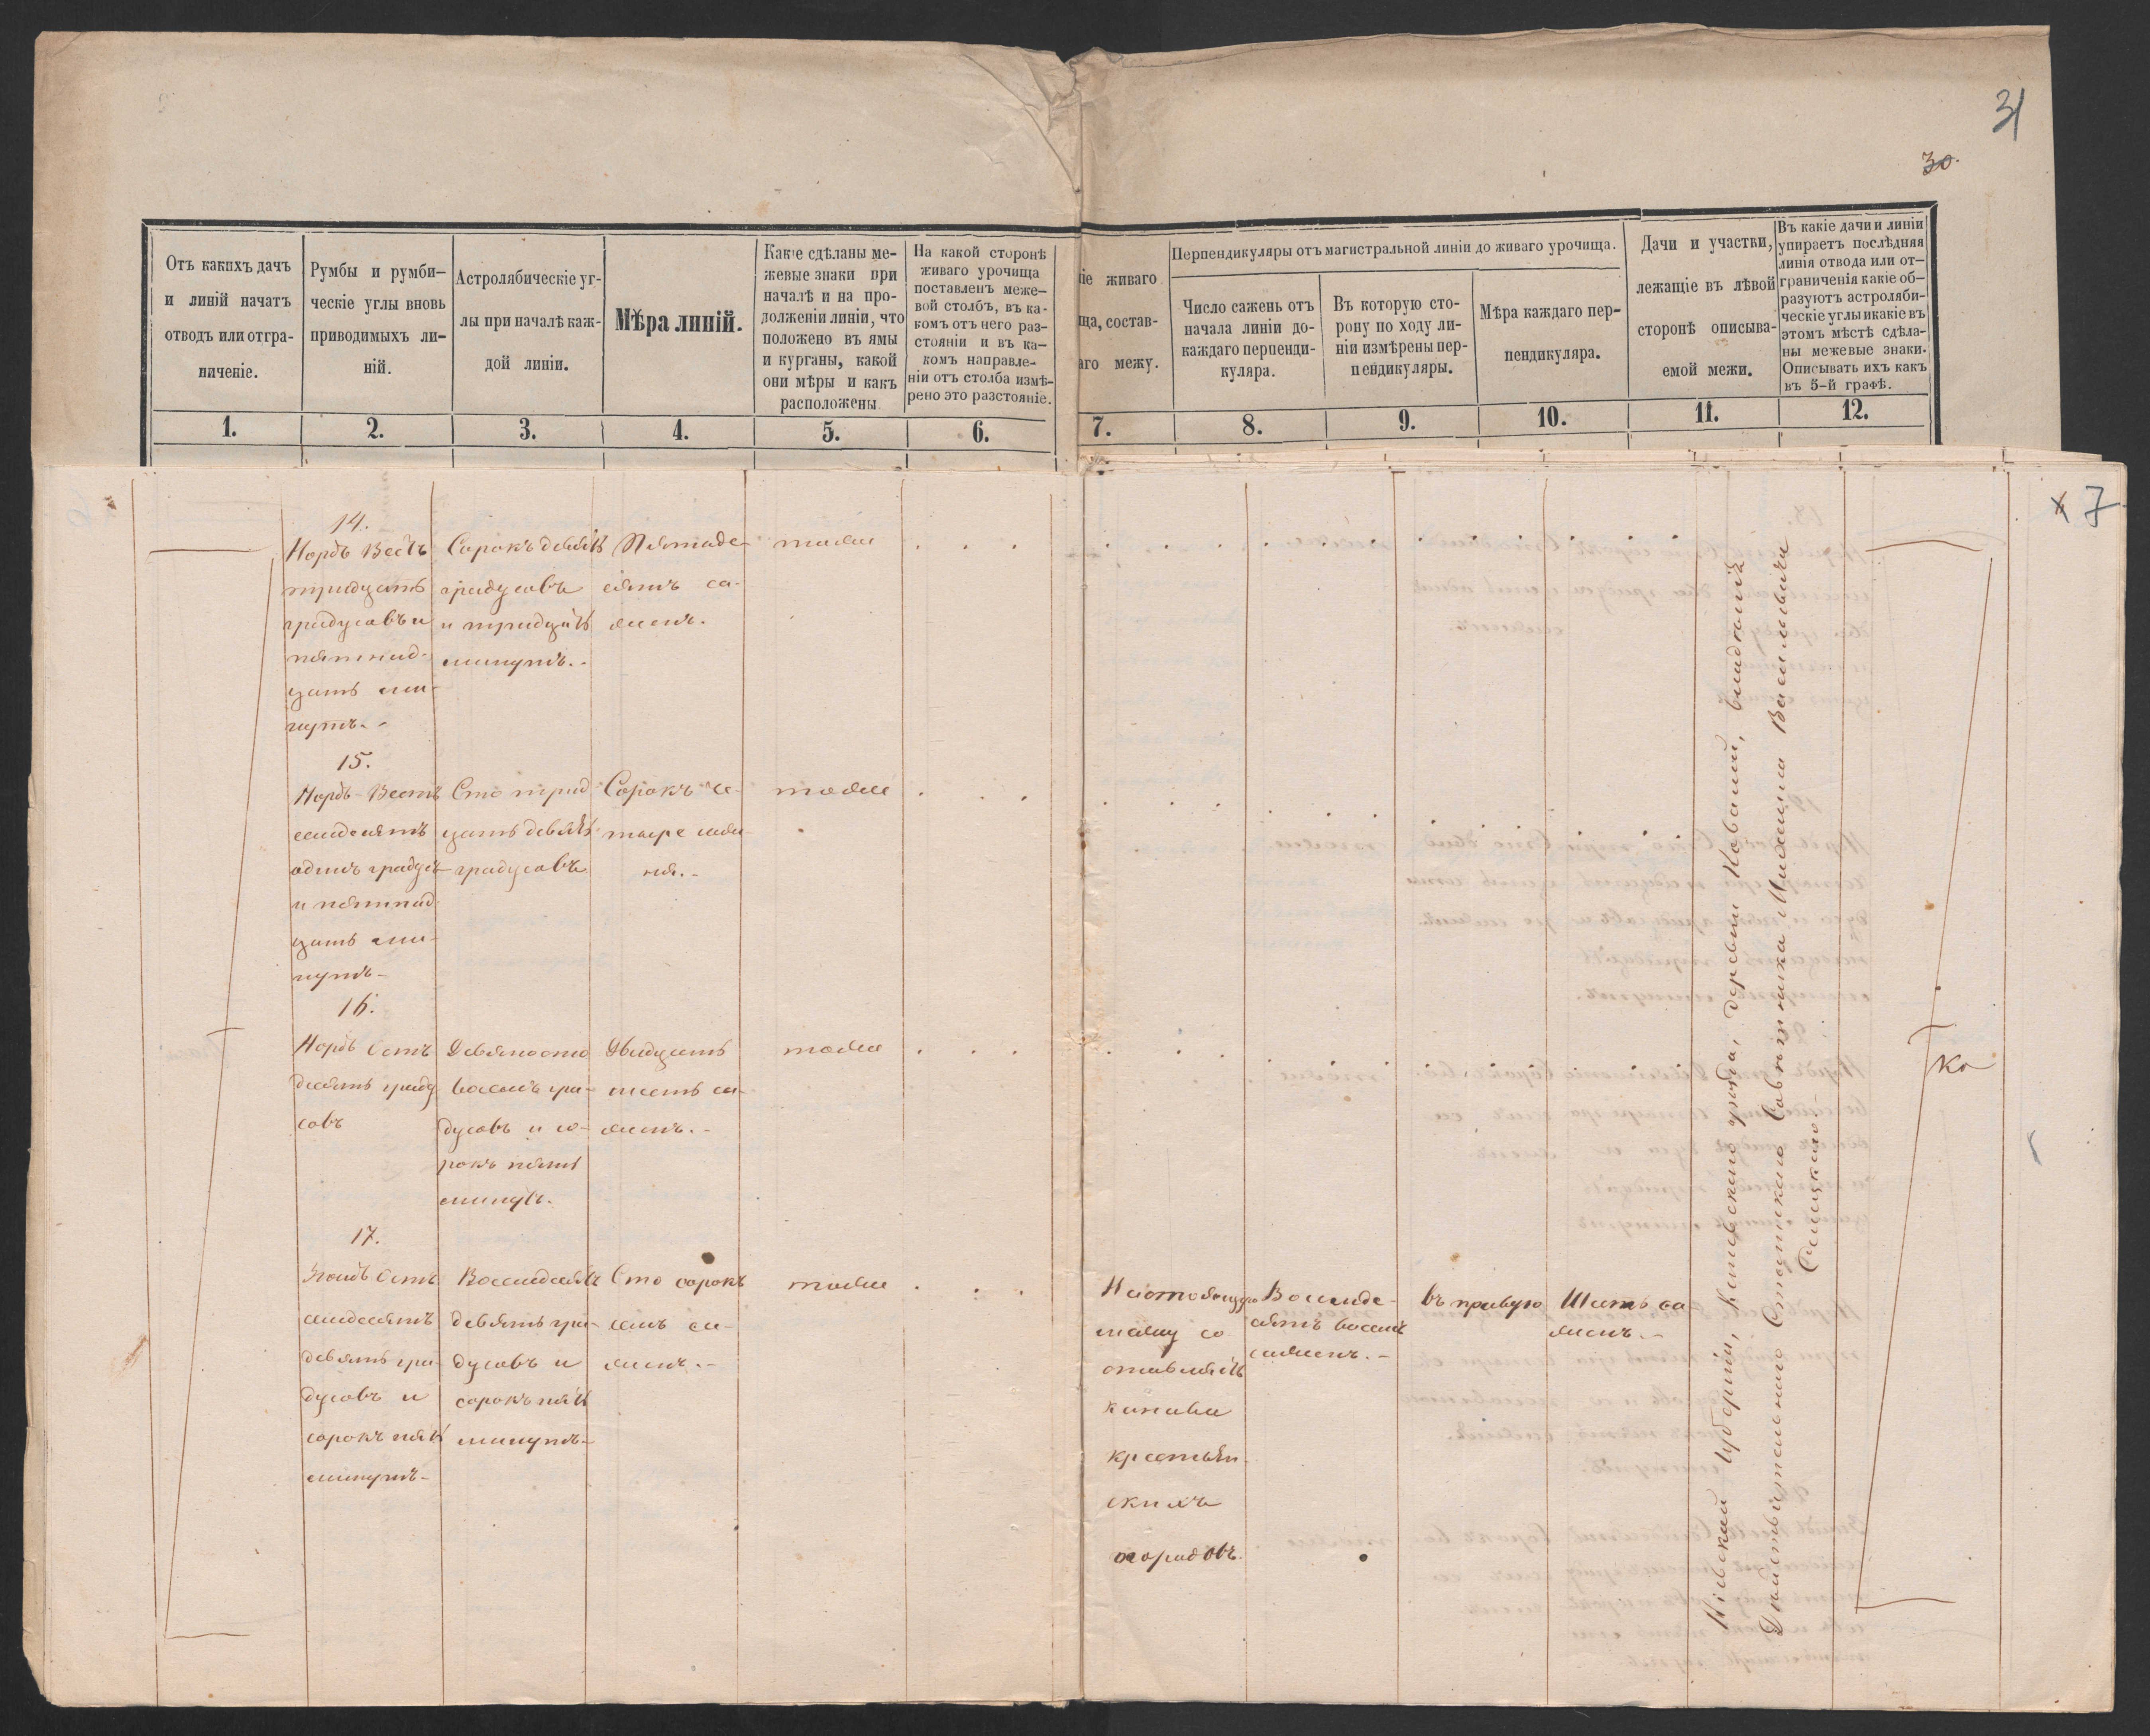 31
30.
Отъ какихъ дачъ
и линій начатъ
отводъ или отгра-
ниченіе.
Румбы и румби-
ческіе углы вновь
приводимыхъ ли-
ній.
Астролябическіе уг-
лы при началѣ каж-
дой линіи.
Мѣра линій.
Какіе сдѣланы ме-
жевые знаки при
началѣ и на про-
долженіи линіи, что
положено въ ямы
и курганы, какой
они мѣры и какъ
расположены.
На какой сторонѣ
живаго урочища
поставленъ меже-
вой столбъ, въ ка-
комъ отъ него раз-
стояніи и въ ка-
комъ направле-
ніи отъ столба измѣ-
рено это разстояніе.
ніе живаго
ща, состав-
аго межу.
Перпендикуляры отъ магистральной линіи до живаго урочища.
Число сажень отъ
начала линіи до-
каждаго перпенди-
куляра.
Въ которую сто-
рону по ходу ли-
ніи измѣрены пер-
пендикуляры.
Мѣра каждаго пер-
пендикуляра.
Дачи и участки,
лежащіе въ лѣвой
сторонѣ описыва-
емой межи.
Въ какіе дачи и линіи
упираетъ послѣдняя
линія отвода или от-
граниченія какіе об-
разуютъ астроляби-
ческіе углы и какіе въ
этомъ мѣстѣ сдѣла-
ны межевые знаки.
Описывать ихъ какъ
въ 5-й графѣ.
1. 2. 3. 4. 5. 6. 7. 8. 9. 10. 11. 12.
7
14.
Нордъ Вестъ
тридцать
градусовъ и
пятнад-
цать ми-
нутъ.
Сорокъ девять
градусовъ
и тридцать
минутъ.
Пятьде-
сятъ са-
жень.
тоже
15.
Нордъ-Вестъ
семдесятъ
одинъ градусъ
и пятнад
цать ми-
нутъ
Сто трид
цать девять
градусовъ
Сорокъ че-
тыре саже-
ня.
тоже
16.
Нордъ Остъ
десять граду
совъ
Девяносто
восемъ гра-
дусовъ и со-
рокъ пять
минутъ.
Двадцать
шесть са-
жень.
тоже
17.
Зюйдъ Остъ
семдесятъ
девять гра-
дусовъ и
сорокъ пять
минутъ
Восемдесятъ
девять гра-
дусовъ и
сорокъ пять
минутъ
Сто сорокъ
семь са-
жень.
тоже
Настоящую
межу со
ставляетъ
канава
крестьян
скихъ
огородовъ.
Восемде-
сятъ восемь
сажень.
въ правую
Шесть са
жень.
Кіевской губерніи, Кіевскаго уѣзда, деревни Ковалей, владѣнія
Дѣйствительнаго Статскаго Совѣтника Михаила Васильевича
ко